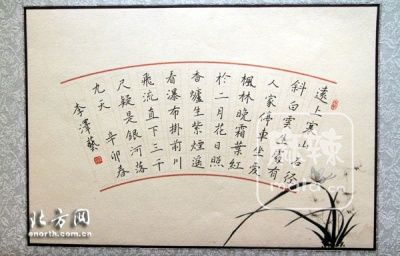 遠上寒山石徑
斜白雲生處有
人家停車坐愛
楓林晚霜葉紅
於二月花日照
香爐生紫煙遙
看瀑布掛前川
飛流直下三千
尺疑是銀河落
九天 辛卯春
李澤藝
北方网
enorth.com.cn